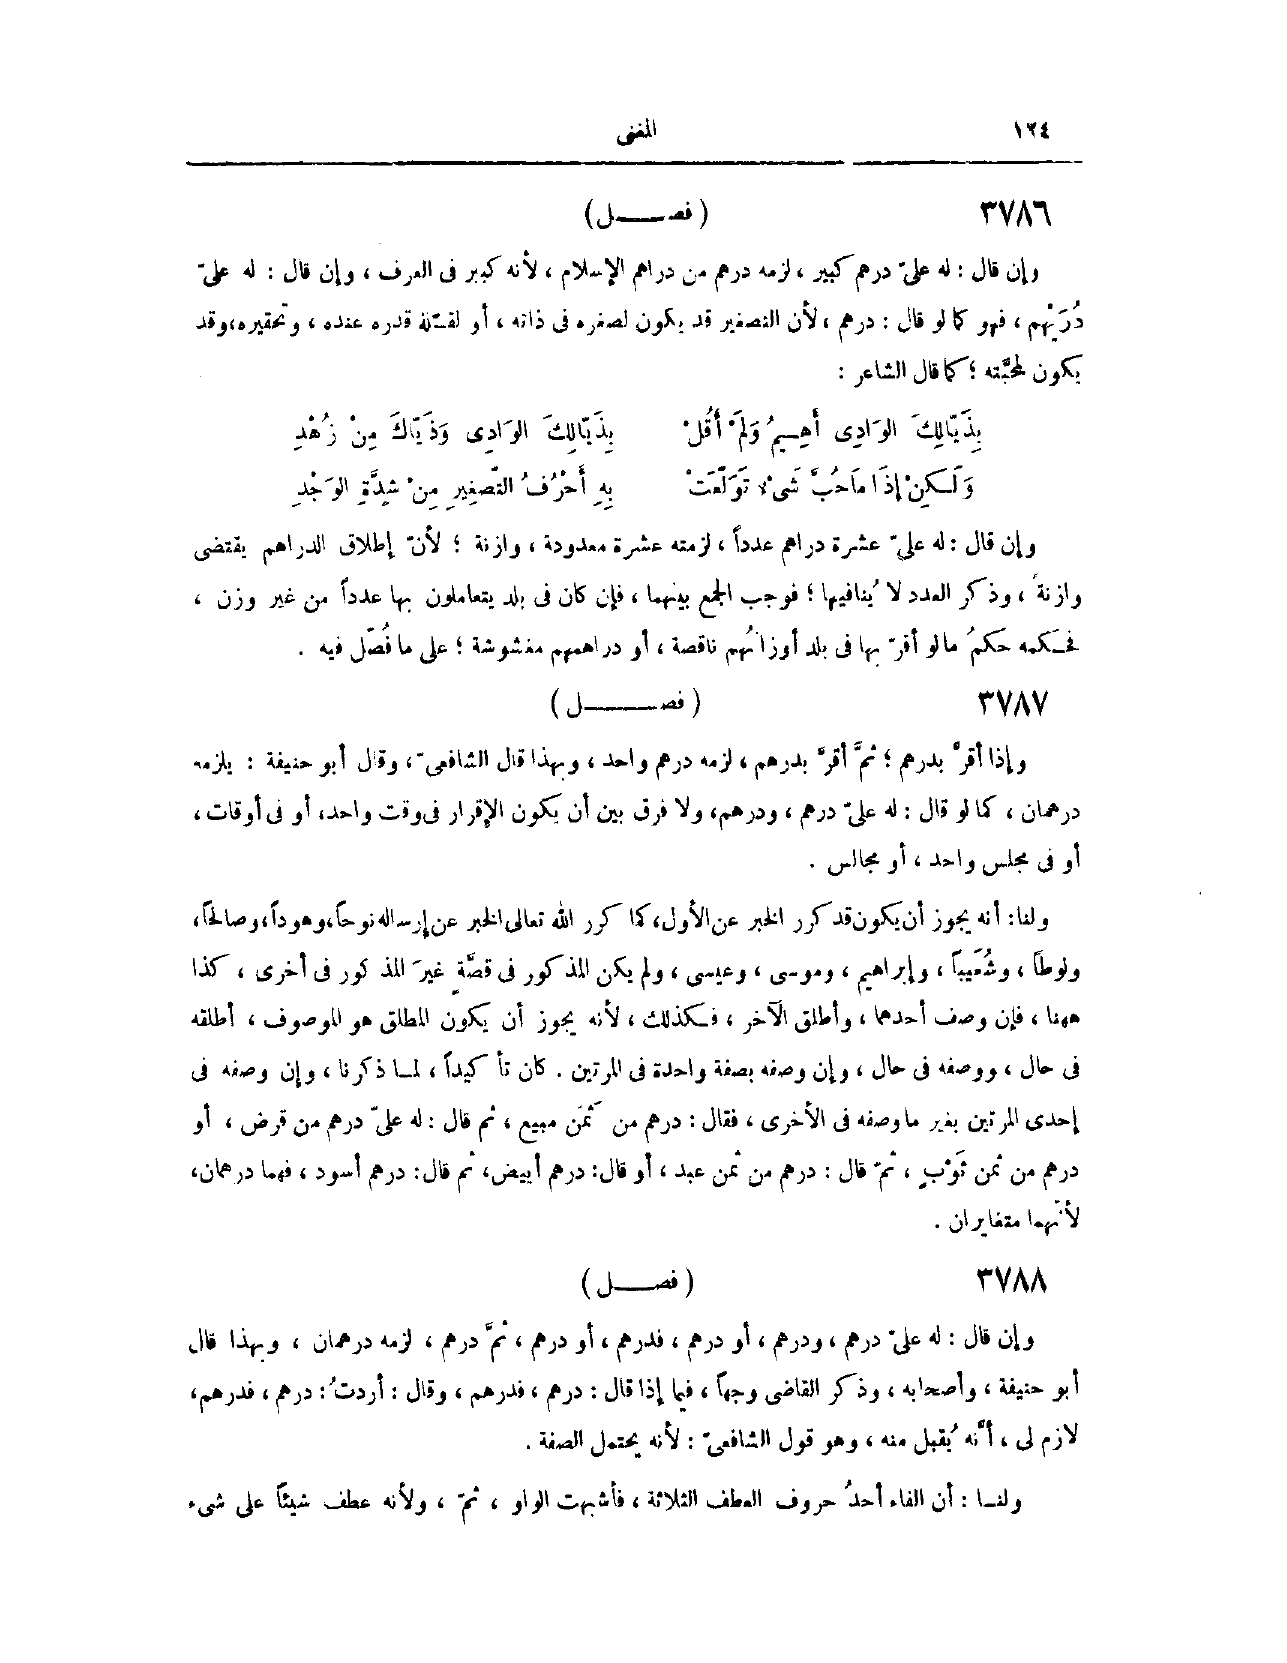 ١٢٤ المغنى
٣٧٨٦ ( فصــــل )
وإن قال : له علىّ درهم كبير ، لزمه درهم من دراهم الإسلام ، لأنه كبير فى العرف ، وإن قال : له علىّ
دُرَيْهم ، فهو كما لو قال : درهم ، لأن التصغير قد يكون لصغره فى ذاته ، أو لقـلّة قدره عنده ، وتحقيره،وقد
يكون لمحبَّته ؛ كما قال الشاعر :
بِذَيَّالِكَ الوَادِى أَهِيـمُ وَلَمْ أَقُلْ بِذَيَّالِكَ الوَادِى وَذَيَّاكَ مِنْ زُهْدِ
وَلَـكِنْ إذَا مَا حُبَّ شَىْءٌ تَوَلَّعَتْ بِهِ أَحْرُفُ التَّصْغِيرِ مِنْ شِدَّةِ الوَجْدِ
وإن قال : له علىّ عشرة دراهم عدداً ، لزمته عشرة معدودة ، وازنة ؛ لأنّ إطلاق الدراهم يقتضى
وازنة ، وذكر العدد لا يُنافيها ؛ فوجب الجمع بينهما ، فإن كان فى بلد يتعاملون بها عدداً من غير وزن ،
فحـكمه حكمُ ما لو أقرّ بها فى بلد أوزانُهم ناقصة ، أو دراهمهم مغشوشة ؛ على ما فُصّل فيه .
٣٧٨٧ ( فصــــل )
وإذا أقرَّ بدرهم ؛ ثمَّ أقرَّ بدرهم ، لزمه درهم واحد ، وبهذا قال الشافعىّ ، وقال أبو حنيفة : يلزمه
درهمان ، كما لو قال : له علىّ درهم ، ودرهم، ولا فرق بين أن يكون الإقرار فى وقت واحد، أو فى أوقات ،
أو فى مجلس واحد ، أو مجالس .
ولنا: أنه يجوز أن يكون قد كرر الخبر عن الأول، كما كرر الله تعالى الخبر عن إرساله نوحاً،وهوداً،وصالحاً،
ولوطاً ، وشُعَيباً ، وإبراهيم ، وموسى ، وعيسى ، ولم يكن المذكور فى قصَّةٍ غيرَ المذكور فى أخرى ، كذا
ههنا ، فإن وصف أحدهما ، وأطلق الآخر ، فـكذلك ، لأنه يجوز أن يكون المطلق هو الموصوف ، أطلقه
فى حال ، ووصفه فى حال ، وإن وصفه بصفة واحدة فى المرتين . كان تأكيداً ، لمـا ذكرنا ، وإن وصفه فى
إحدى المرتين بغير ما وصفه فى الأخرى ، فقال : درهم من ثَمَن مبيع ، ثم قال : له علىّ درهم من قرض ، أو
درهم من ثمن ثَوْبٍ ، ثمّ قال : درهم من ثمن عبد ، أو قال: درهم أبيض، ثم قال: درهم أسود ، فهما درهمان،
لأنّهما متغايران .
٣٧٨٨ ( فصــــل )
وإن قال : له علىّ درهم ، ودرهم ، أو درهم ، فدرهم ، أو درهم ، ثمَّ درهم ، لزمه درهمان ، وبهذا قال
أبو حنيفة ، وأصحابه ، وذكر القاضى وجهاً ، فيما إذا قال : درهم ، فدرهم ، وقال : أردتُ: درهم ، فدرهم،
لازم لى ، أنَّه يُقبل منه ، وهو قول الشافعىّ : لأنه يحتمل الصفة .
ولنـا : أن الفاء أحدُ حروف العطف الثلاثة ، فأشبهت الواو ، ثمّ ، ولأنه عطف شيئاً على شىء